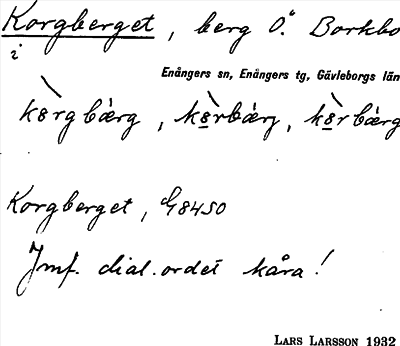 Korgberget, berg O. Borkbo
i
Enångers sn, Enångers tg, Gävleborgs län
kȯrgbàrg, kȯrbàrj, kȯrbàrg
Korgberget, G8450
Jmf. dial. ordet kåra!
LARS LARSSON 1932